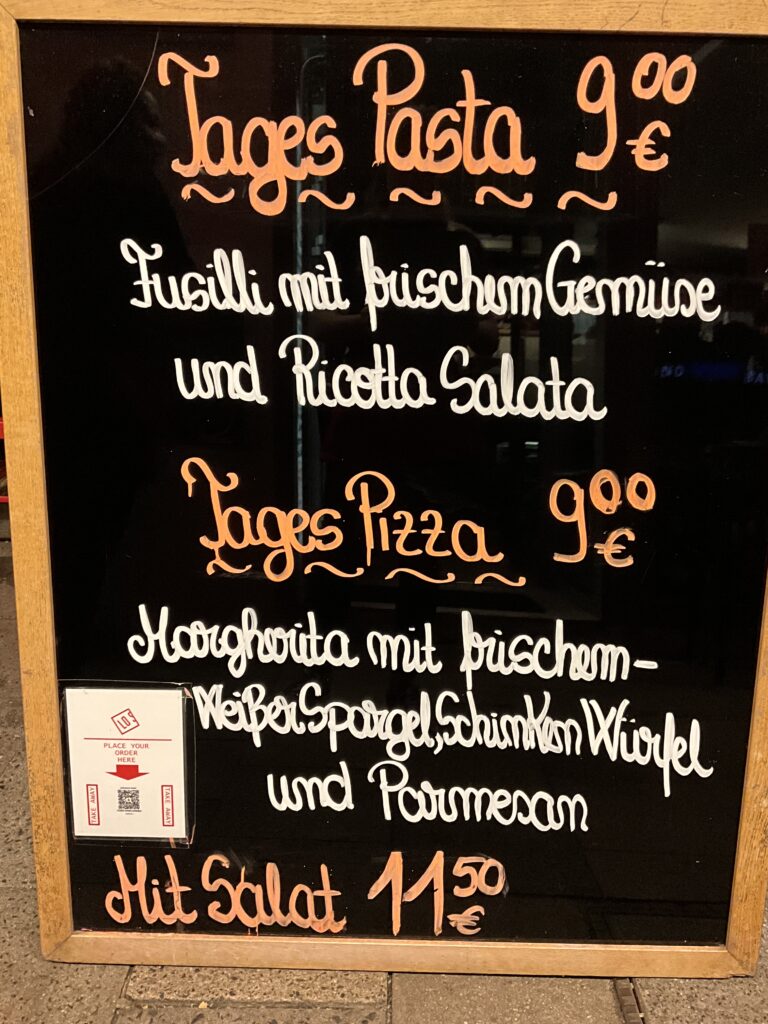 Tages Pasta 900 €
Fusilli mit frischem Gemüse
und Ricotta Salata
Tages Pizza 900 €
Margherita mit frischem-
Weißer Spargel, Schinken Würfel
und Parmesan
PLACE YOUR
ORDER
HERE
TAKE AWAY
TAKE AWAY
Mit Salat 11 50 €